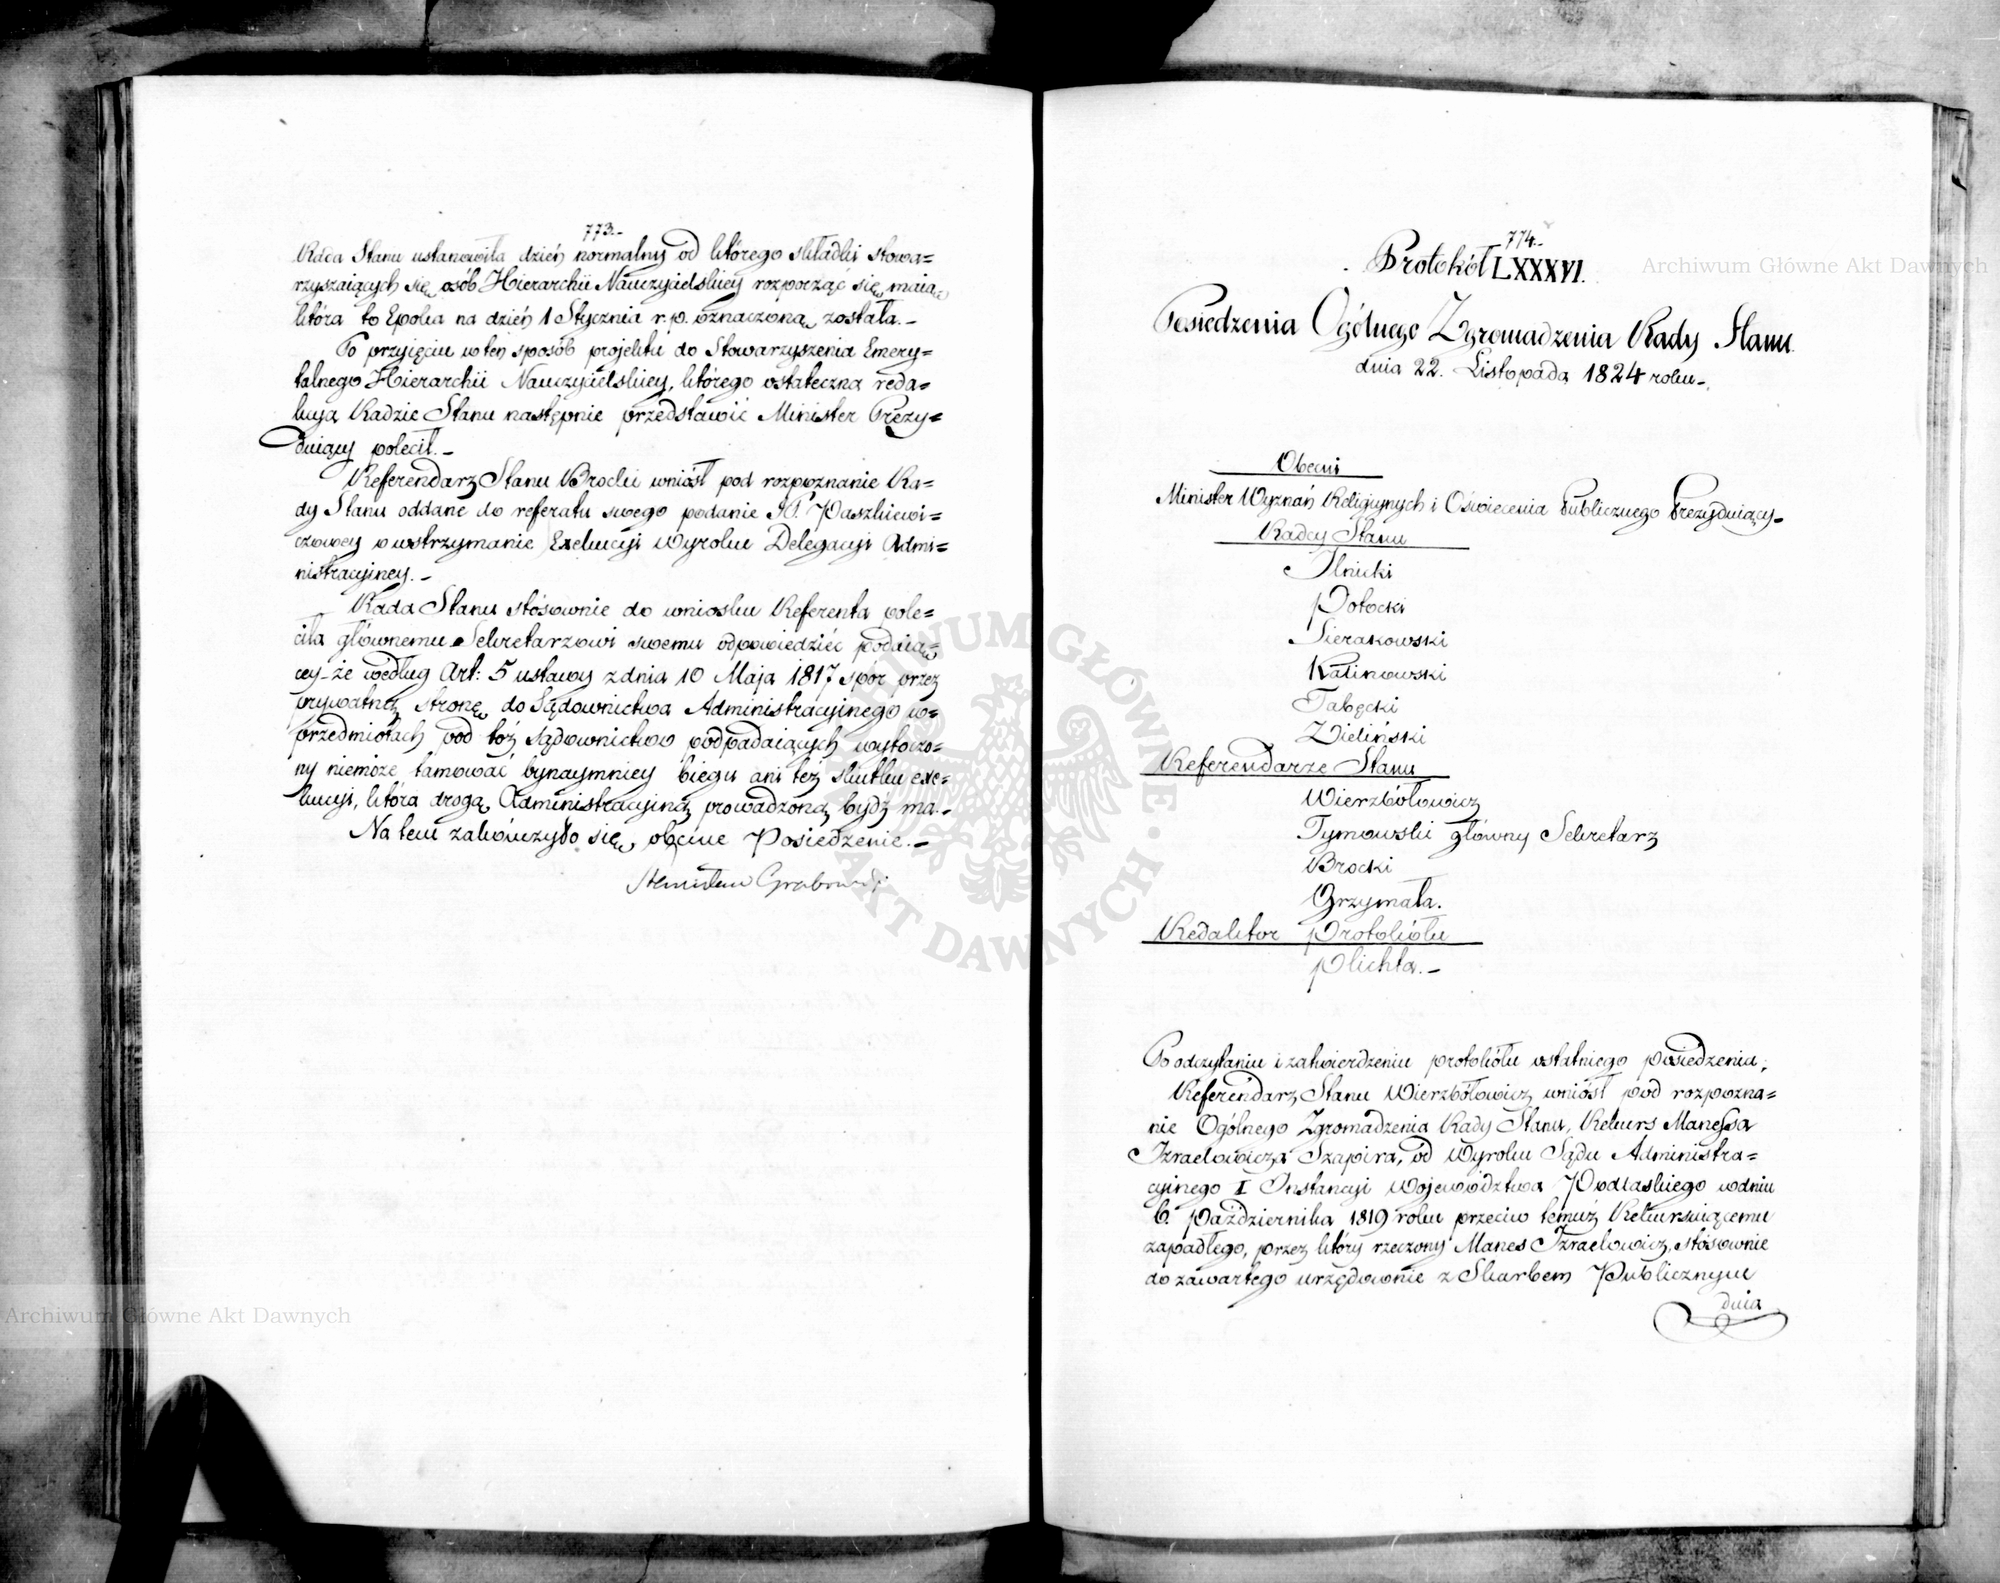 773.-
Rada Stanu ustanowiła dzień normalny od którego składki stowa=
rzyszaiących się osób Hierarchii Nauczycielskiey rozpocząć się maią
która to Epoka na dzień 1 Stycznia r. p. oznaczoną została.-
Po przyięciu w ten sposób projektu do Stowarzyszenia Emery=
talnego Hierarchii Nauczycielskiey, którego ostateczną reda=
kcyą Radzie Stanu następnie przedstawić Minister Prezy=
duiący polecił.-
Referendarz Stanu Brocki wniósł pod rozpoznanie Ra=
dy Stanu oddane do referatu swego podanie Paszkiewi=
czowey o wstrzymanie Exekucyi Wyroku Delegacyi Admi=
nistracyiney.-
Rada Stanu stósownie do wniosku Referenta pole=
ciła głównemu Sekretarzowi swemu odpowiedzieć podaią=
cey-że według Art: 5 ustawy z dnia 10 Maja 1817 spór przez
prywatną stronę do Sądownictwa Administracyinego w=
przedmiotach pod toż sądownictwo podpadaiących wytoczo=
ny niemoże tamować bynaymniey biegu ani też skutku exe=
kucyi, która drogą Administracyiną prowadzoną bydź ma.-
Na tem zakończyło się obecne Posiedzenie.-
Stanisław Grabowski
774.-
Protokół LXXXVI.
Posiedzenia Ogólnego Zgromadzenia Rady Stanu
dnia 22. Listopada 1824 roku-.
Obecni
Minister Wyznań Religiynych i Oświecenia Publicznego Prezyduiący-
Radcy Stanu
Ilnicki
Potocki
Sierakowski
Kalinowski
Tabęcki
Zieliński
Referendarze Stanu
Wierzbołowicz
Tymowski główny Sekretarz
Brocki
Grzymała.
Redaktor Protokółu
Plichta.-
Po odczytaniu i zatwierdzeniu protokółu ostatniego posiedzenia,
Referendarz Stanu Wierzbołowicz wniósł pod rozpozna=
nie Ogólnego Zgromadzenia Rady Stanu, Rekurs Manessa
Izraelowicza Szapira, od Wyroku Sądu Administra=
cyinego I Instancyi Województwa Podlaskiego w dniu
6. Października 1819 roku przeciw temuż Rekursuiącemu
zapadłego, przez który rzeczony Manes Izraelowicz, stósownie
do zawartego urzędownie z Skarbem Publicznym
dnia
Archiwum Główne Akt Dawnych
Archiwum Główne Akt Dawnych
ARCHIWUM GŁÓWNE AKT DAWNYCH